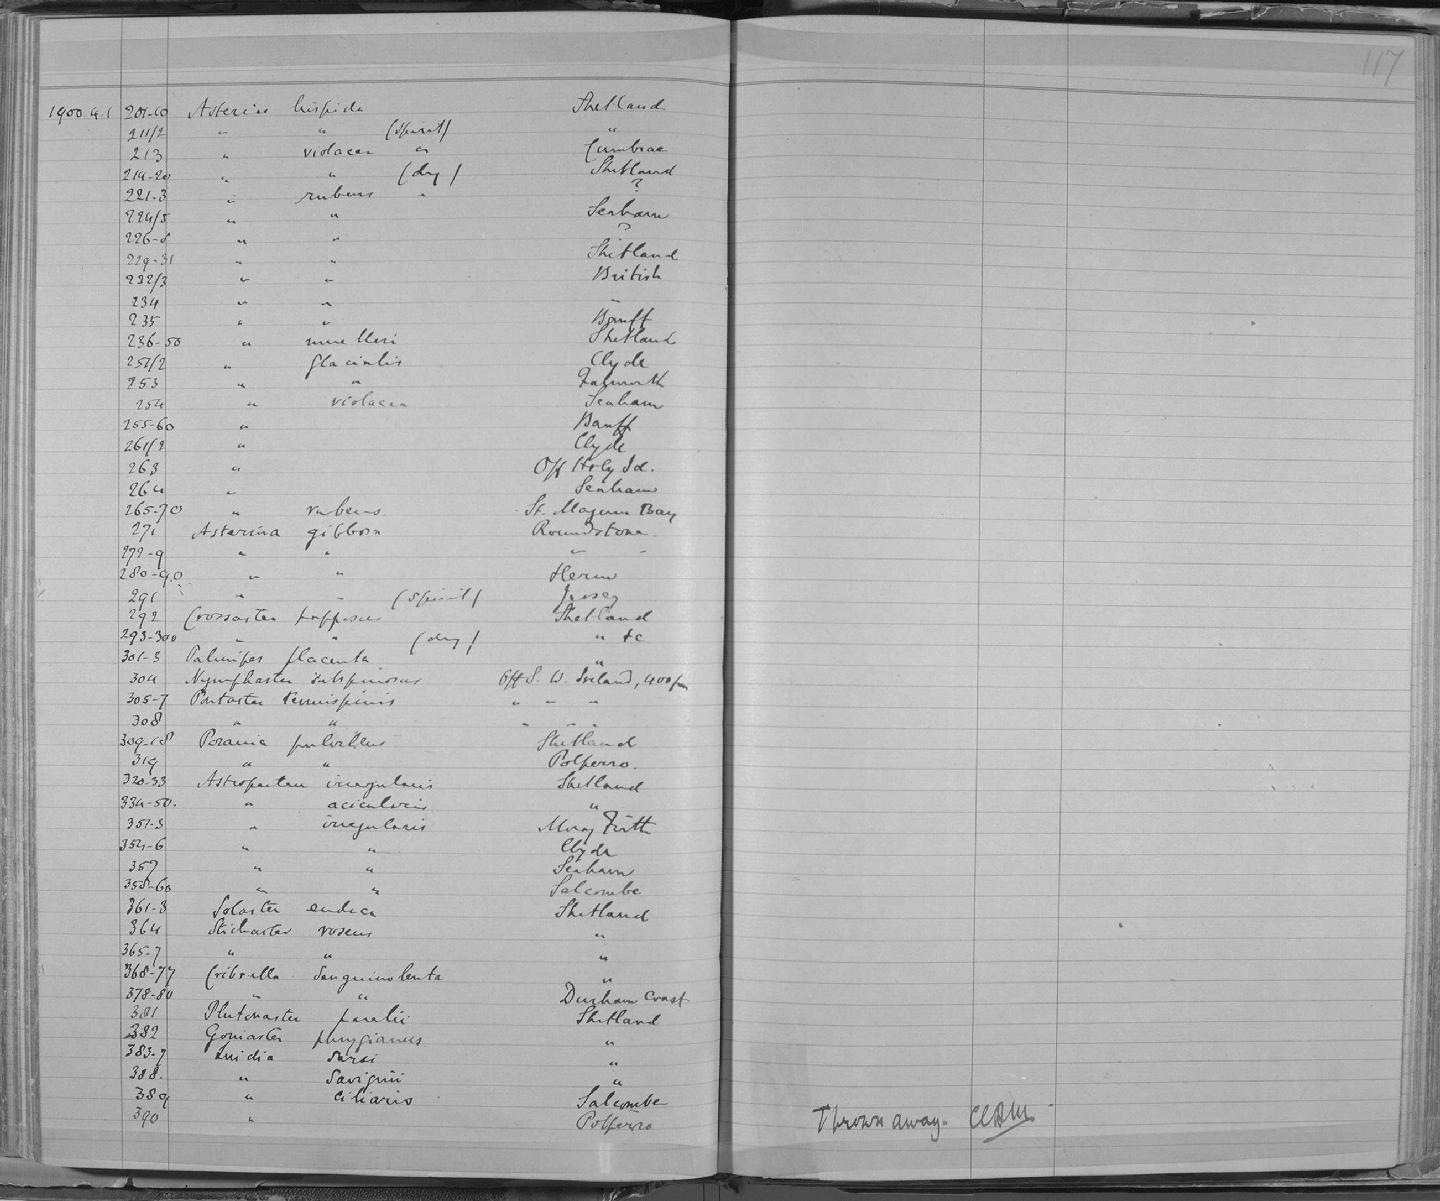 117
1900.4.1 201-10 Asterias hispida Shetland
211/2 " " (spirit) "
213 " violacea " Cumbrae
214-20 " " (dry) Shetland
221-3 " rubens " ?
224/5 " " Seaham
226-8 " " ?
229-31 " " Shetland
232/3 " " British
234 " " "
235 " " Banff
236-50 " muelleri Shetland
251/2 " glacialis Clyde
253 " " Falmouth
254 " violacea Seaham
255-60 " Banff
261/2 " Clyde
263 " Off Holy Id.
264 " Seaham
265-70 " rubens St. Magnus Bay
271 Asterina gibbosa Roundstone
272-9 " " " "
280-90 " " Herm
291 " " (spirit) Jersey
292 Crossaster papposus Shetland
293-300 " " (dry) " &c
301-3 Palmipes placenta "
304 Nymphaster subspinosus Off S. W. Ireland, 400 fm
305-7 Pontaster tenuispinis " " "
308 " " " " "
309-18 Porania pulvillus Shetland
319 " " Polperro.
320-33 Astropecten irregularis Shetland
334-50. " acicularis "
351-3 " irregularis Moray Firth
354-6 " " Clyde
357 " " Seaham
358-60 " " Salcombe
361-3 Solaster endeca Shetland
364 Stichaster roseus "
365-7 " " "
368-77 Cribrella sanguinolenta "
378-80 " " Durham Coast
381 Plutonaster parelii Shetland
382 Goniaster phrygianus "
383-7 Luidia sarsi "
388. " Savignii "
389 " ciliaris Salcombe
390 " Polperro Thrown away.